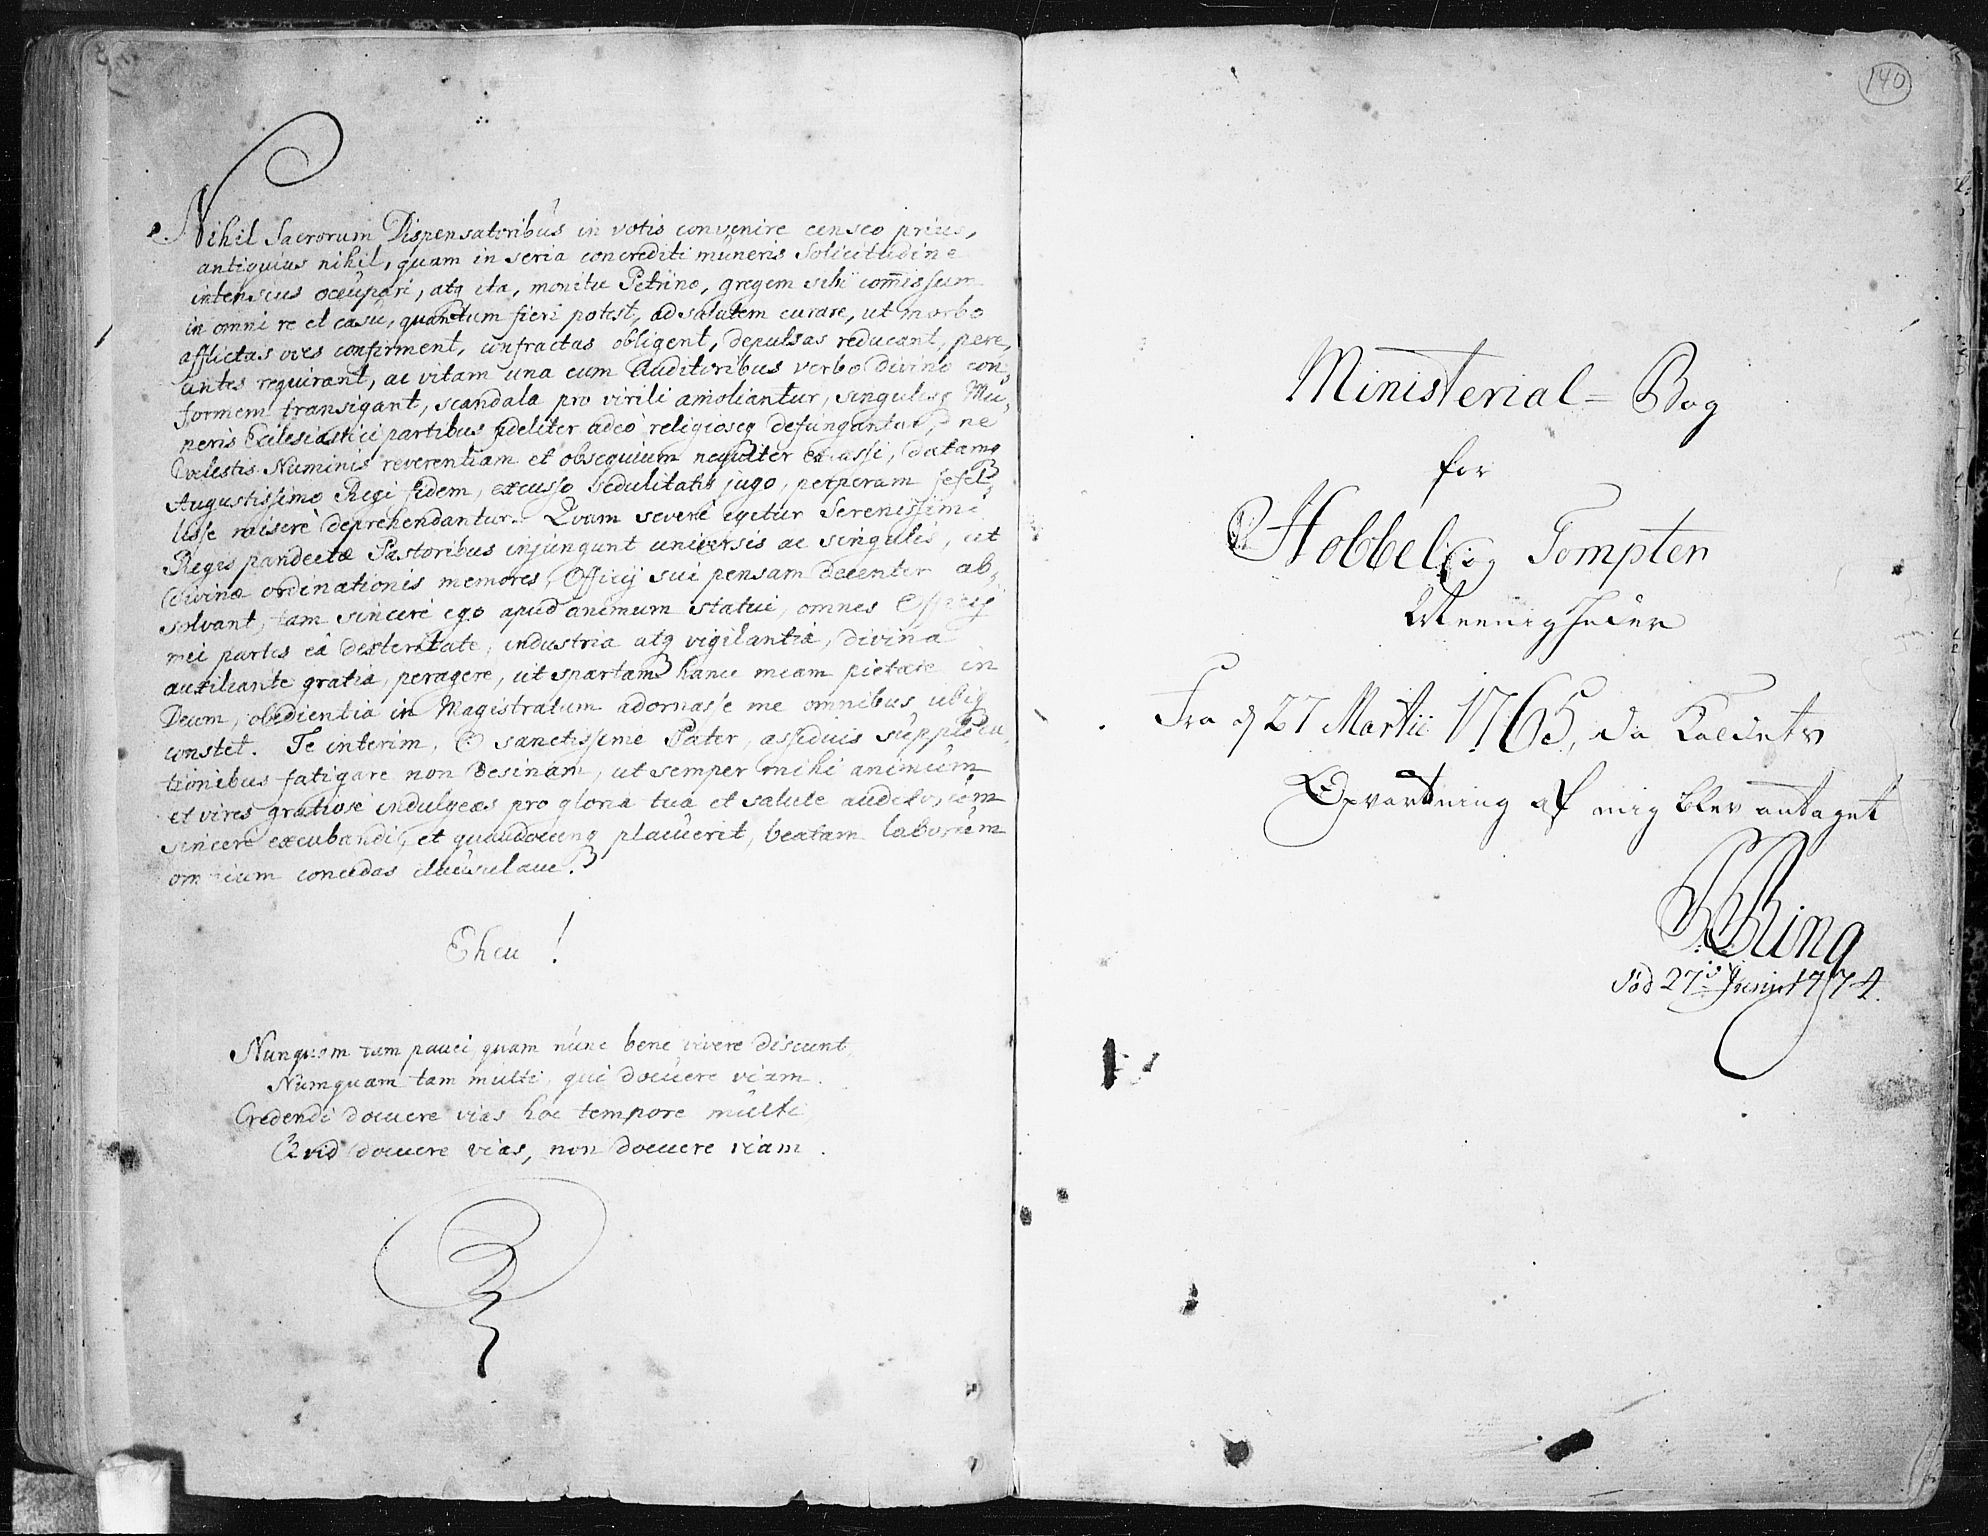 Nihil Sacrorum Dispensatoribus in votis convenire censeo prius,
antiquius nihil, quam in seria concrediti muneris Solicitudine
intensius occupari, atq ita, monitu Petrino, gregem sibi com̄issum
in omni re et casu, quantum fieri potest, ad salutem curare, ut morbo
afflictas oves confirment, confractas obligent, depulsas reducant, pere,
untes requirant, ac vitam una cum Auditoribus verbo Divino con,
formem transigant, scandala pro virili amoliantur, singulisq Mu,
neris Ecclesiastici partibus fideliter adeò religioseq defungantur, ne
Coelestis Numinis reverentiam et obsequium nequiter datamq
Augustissimo Regi fidem, excusso sedulitatis jugo, perperam fefel,
lisse miserè deprehendantur. Qvam severè igitur Serenissimi
Regis pandectæ Pastoribus injungunt universis ac singulis, ut
Divinæ ordinationis memores, Officij sui pensam decenter ab,
solvant, tam sincerè ego apud animum statui, omnes Officij
mei partes eâ dexteritate, industria atq vigilantia, divina
auxiliante gratia, peragere, ut spartam hanc meam pietate in
Deum, obedientia in Magistratum adornasse me omnibus ubiq
constet. Te interim, O sanctissime Pater, assiduis supplica,
tionibus fatigare non desinam, ut semper mihi animum
et vires gratiose indulgeas pro gloria tua et salute
sincere excubandi, et quandocunq placuerit, beatam laborum
omnium concedas clausulam.
Eheu!
Nunquam tam pauci, quam nunc bene vivere discunt,
Numquam tam multi, qui docuere viam.
Credendi docuere vias hoc tempore multi,
Qvid docuere vias, non docuere viam.
140
Ministerial-Bog
for
Hobbel og Tompten
Meenigheder
Fra d 27 Martii 1765, da Kaldets
Opvartning af mig blev antaget
Ring
død 27de Junii 1774.